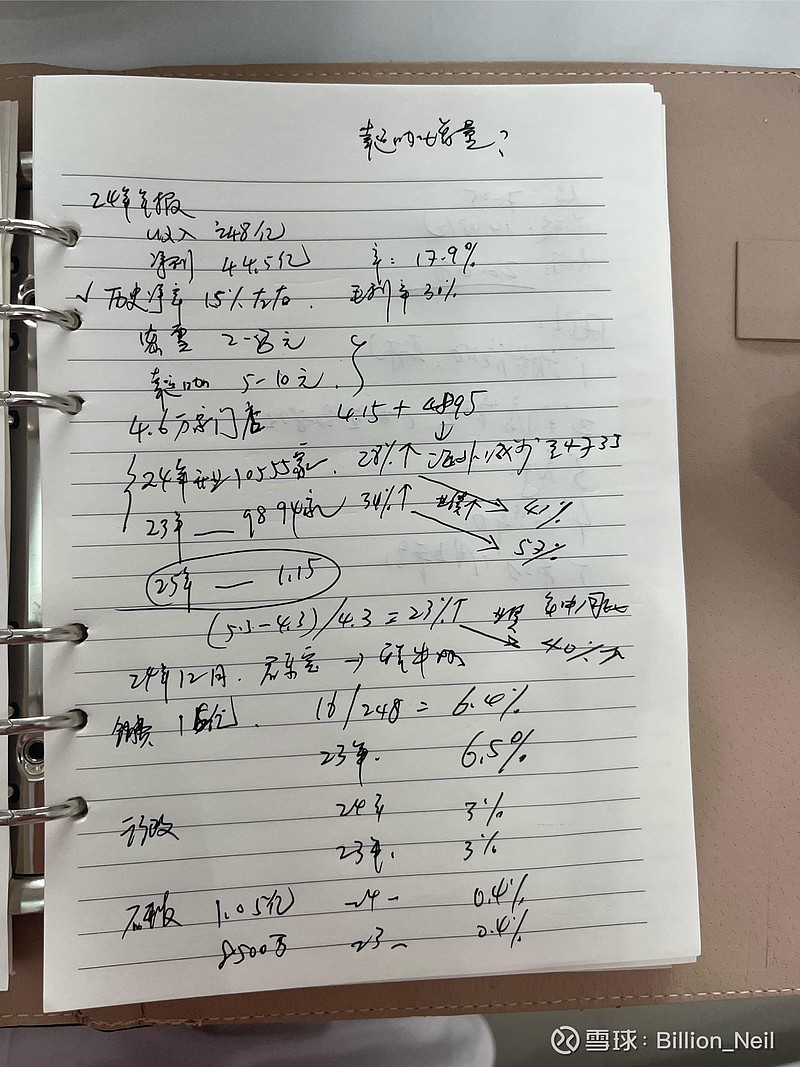 幸运咖增量?
24年年报
收入 248亿
净利 44.5亿 率: 17.9%
√ 历史净率 15%左右. 毛利率 30%
蜜雪 2-8元
幸运咖 5-10元
4.6万家门店 4.15 + 4895
24年开业10555家 28%↑ 海外减少至4千35
23年 — 9894家 34%↑ 业绩 41%
53%
25年 — 1.15
(5.3-4.3)/4.3 = 23%↑ 业绩 年中同比
40%
24年12月. 君乐宝 →
销费 16亿. 16/248 = 6.4%
23年. 6.5%
行政 24年 3%
23年. 3%
研发 1.05亿 —24— 0.4%
8500万 —23— 0.4%
雪球:Billion_Neil